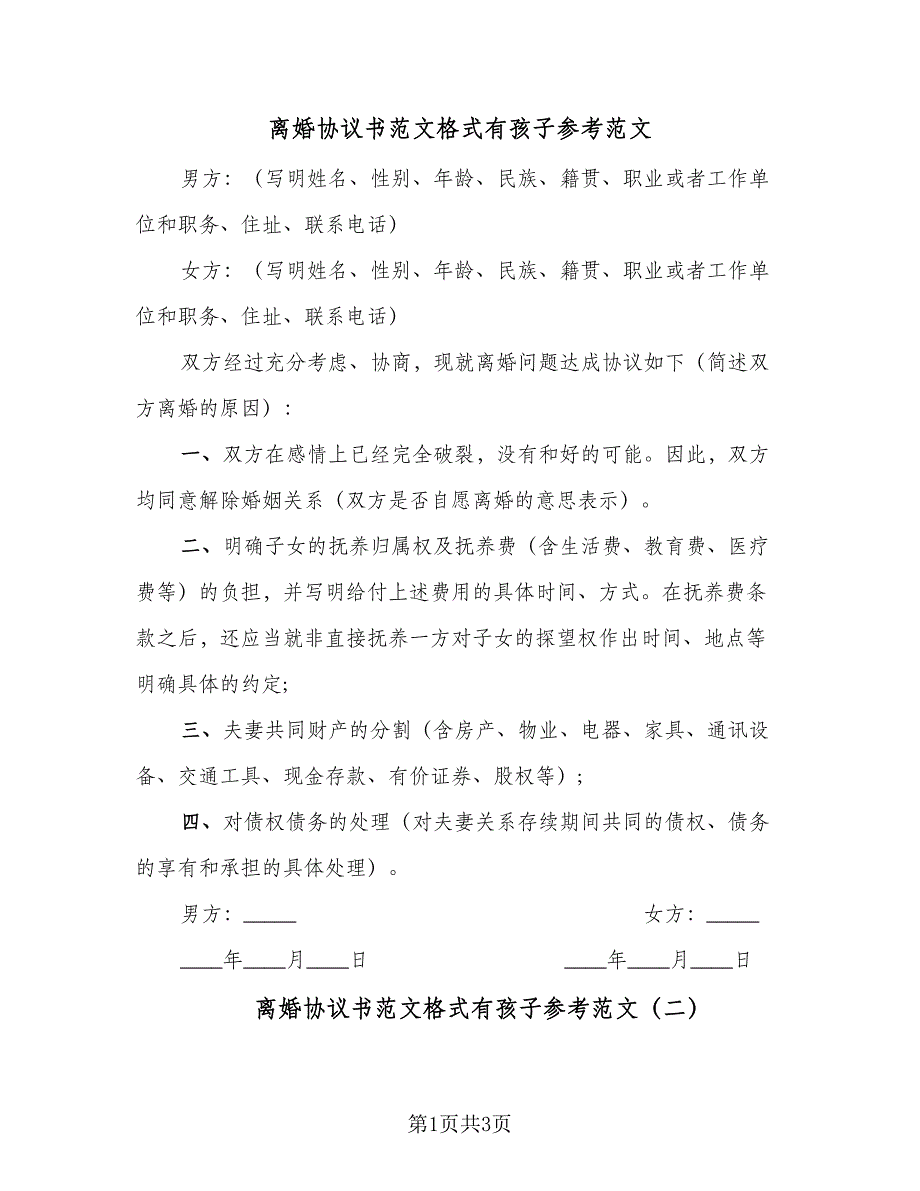 离婚协议书范文格式有孩子参考范文
男方：（写明姓名、性别、年龄、民族、籍贯、职业或者工作单
位和职务、住址、联系电话）
女方：（写明姓名、性别、年龄、民族、籍贯、职业或者工作单
位和职务、住址、联系电话）
双方经过充分考虑、协商，现就离婚问题达成协议如下（简述双
方离婚的原因）：
一、双方在感情上已经完全破裂，没有和好的可能。因此，双方
均同意解除婚姻关系（双方是否自愿离婚的意思表示）。
二、明确子女的抚养归属权及抚养费（含生活费、教育费、医疗
费等）的负担，并写明给付上述费用的具体时间、方式。在抚养费条
款之后，还应当就非直接抚养一方对子女的探望权作出时间、地点等
明确具体的约定;
三、夫妻共同财产的分割（含房产、物业、电器、家具、通讯设
备、交通工具、现金存款、有价证券、股权等）;
四、对债权债务的处理（对夫妻关系存续期间共同的债权、债务
的享有和承担的具体处理）。
男方：_____ 女方：_____
____年____月____日 ____年____月____日
离婚协议书范文格式有孩子参考范文（二）
第1页共3页